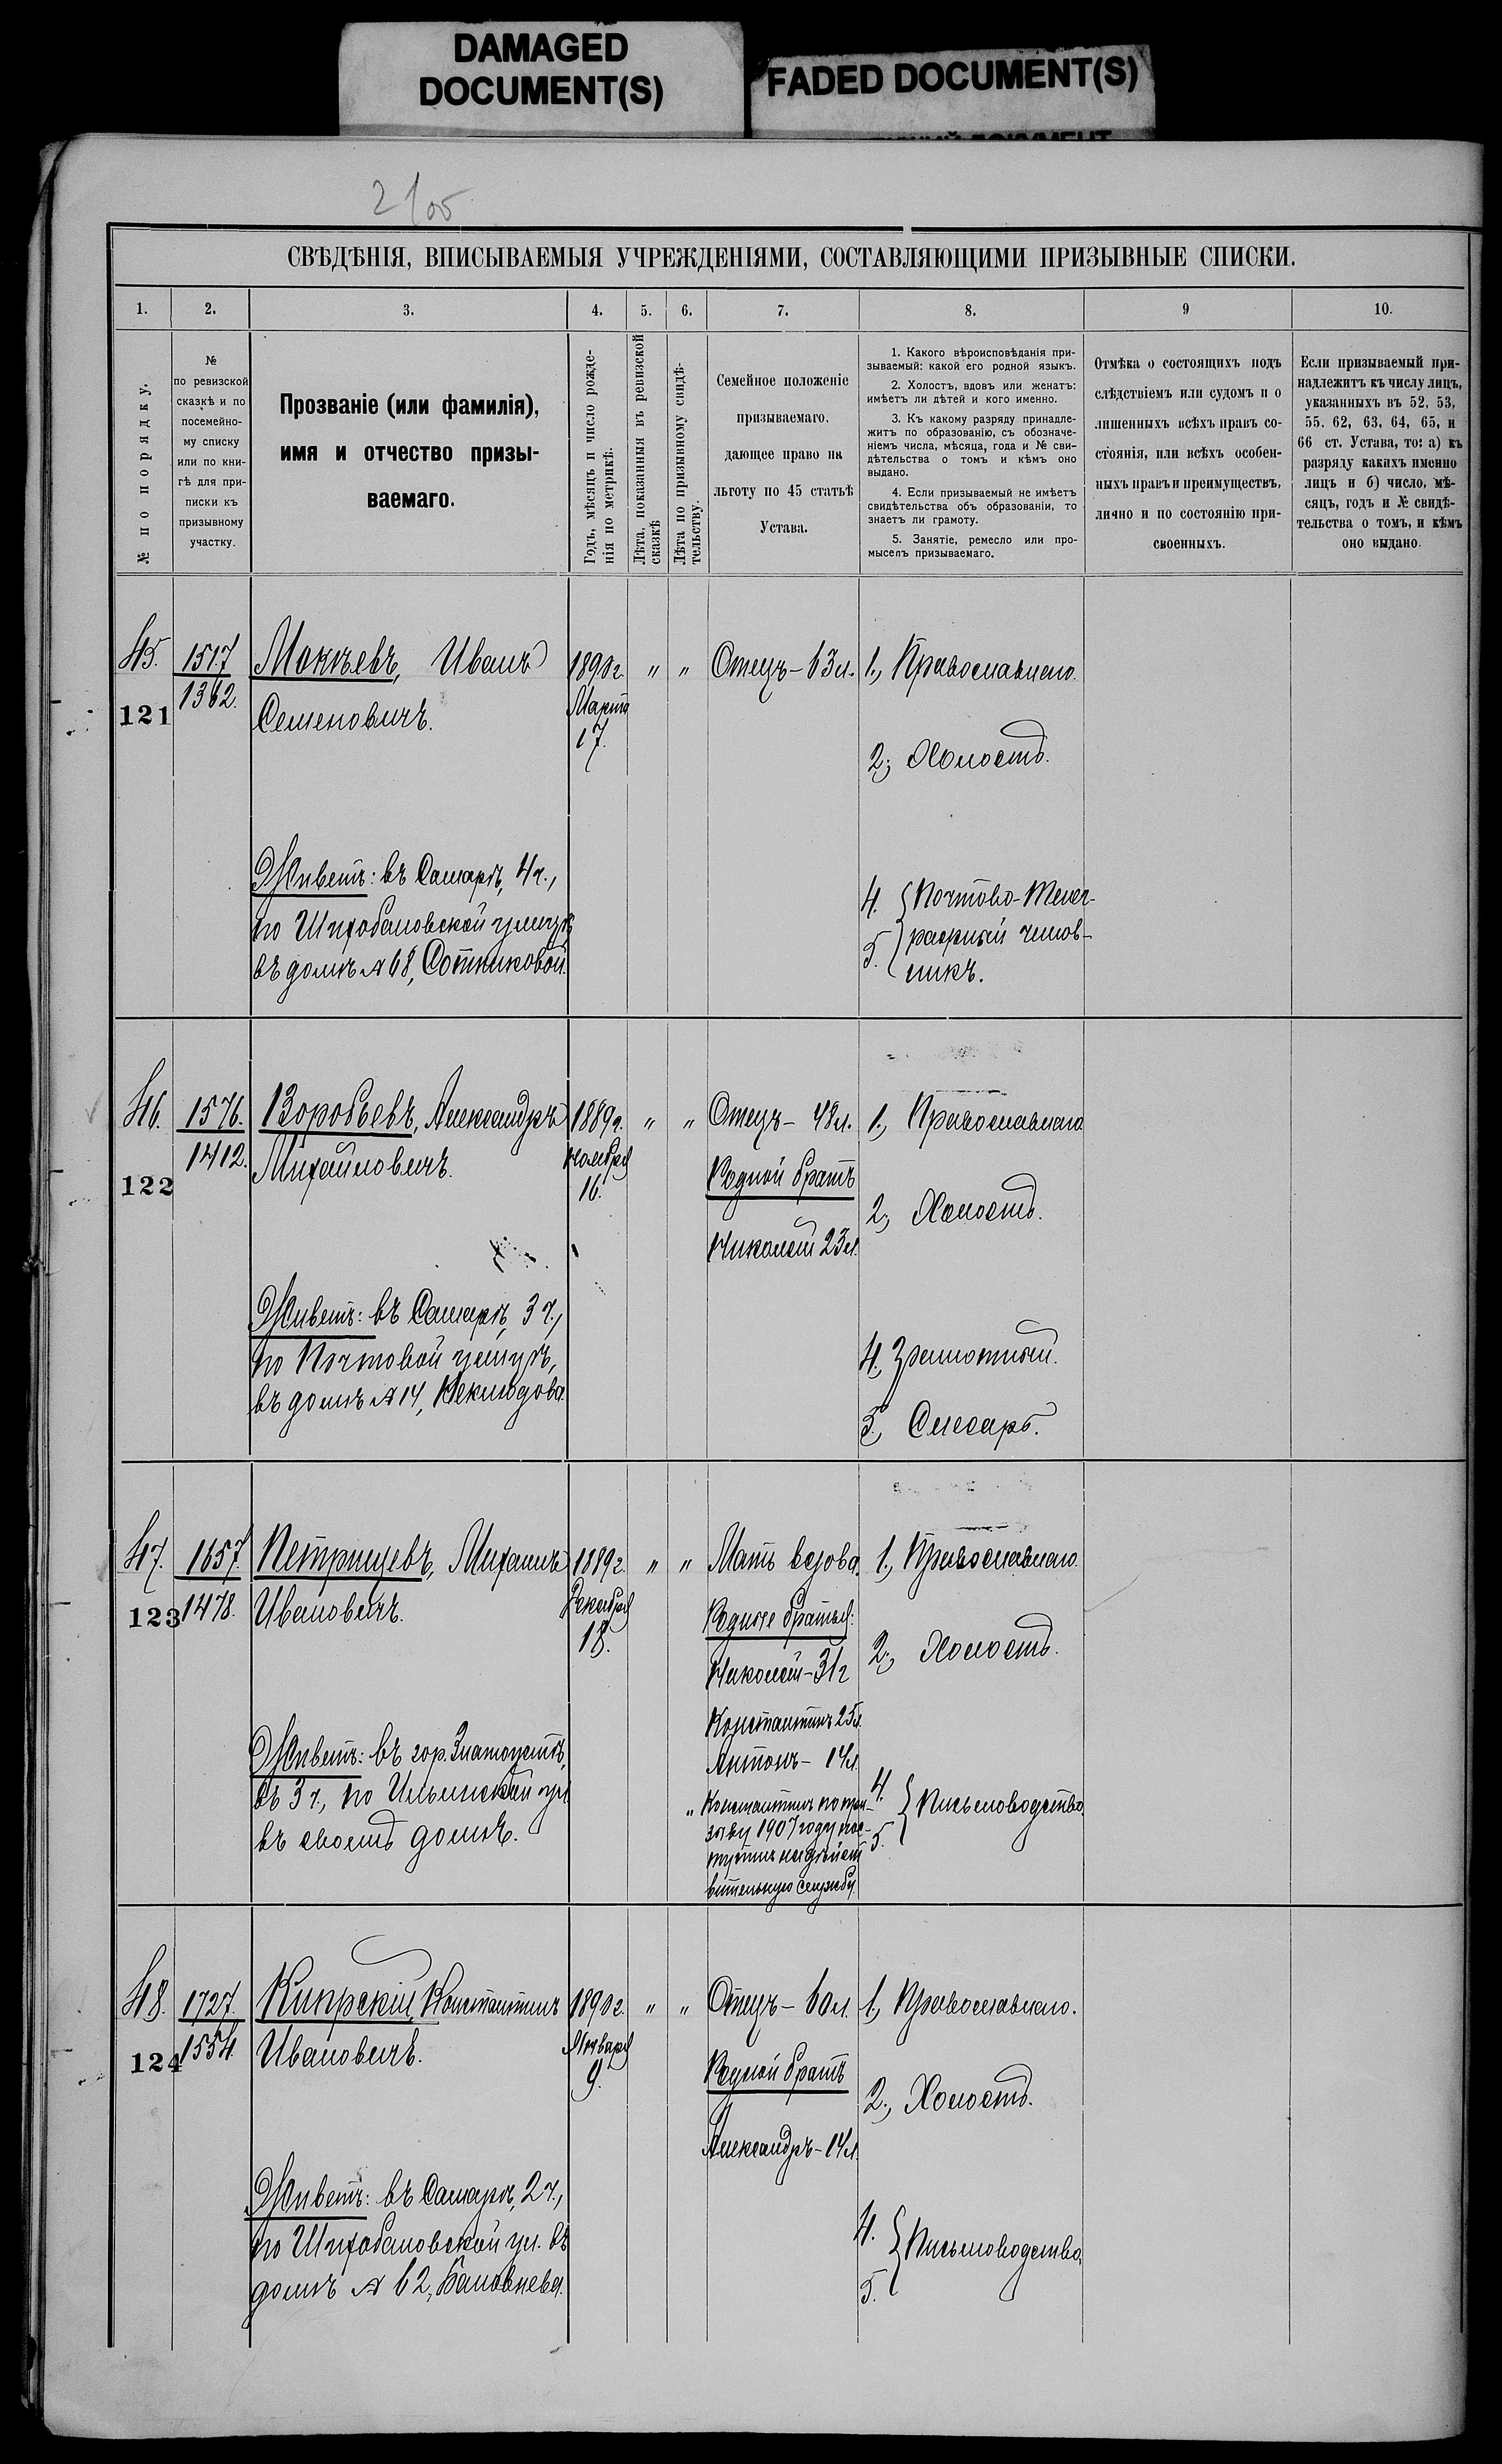 DAMAGED
DOCUMENT(S)
FADED DOCUMENT(S)
СВѢДѢНІЯ, ВПИСЫВАЕМЫЯ УЧРЕЖДЕНІЯМИ, СОСТАВЛЯЮЩИМИ ПРИЗЫВНЫЕ СПИСКИ.
1. 2. 3. 4. 5. 6. 7. 8. 9 10.
№ по порядку.
№
по ревизской
сказкѣ и по
посемейно-
му списку
или по кни-
гѣ для при-
писки къ
призывному
участку.
Прозваніе (или фамилія),
имя и отчество призы-
ваемаго.
Годъ, мѣсяцъ и число рожде-
нія по метрикѣ.
Лѣта, показанныя въ ревизской
сказкѣ
Лѣта по призывному свидѣ-
тельству.
Семейное положеніе
призываемаго,
дающее право на
льготу по 45 статьѣ
Устава.
1. Какого вѣроисповѣданія при-
зываемый: какой его родной языкъ.
2. Холостъ, вдовъ или женатъ:
имѣетъ ли дѣтей и кого именно.
3. Къ какому разряду принадле-
житъ по образованію, съ обозначе-
ніемъ числа, мѣсяца, года и № сви-
дѣтельства о томъ и кѣмъ оно
выдано.
4. Если призываемый не имѣетъ
свидѣтельства объ образованіи, то
знаетъ ли грамоту.
5. Занятіе, ремесло или про-
мыселъ призываемаго.
Отмѣка о состоящихъ подъ
слѣдствіемъ или судомъ и о
лишенныхъ всѣхъ правъ со-
стоянія, или всѣхъ особен-
ныхъ правъ и преимуществъ,
лично и по состоянію при-
своенныхъ.
Если призываемый при-
надлежитъ къ числу лицъ,
указанныхъ въ 52, 53,
55. 62, 63, 64, 65, и
66 ст. Устава, то: а) къ
разряду какихъ именно
лицъ и б) число, мѣ-
сяцъ, годъ и № свидѣ-
тельства о томъ, и кѣмъ
оно выдано.
45.
121
1517
1362.
Мокѣевъ, Иванъ
Семеновичъ.
Живетъ: въ Самарѣ, 4 ч.,
по Шихобаловской улицѣ
въ домѣ № 68, Сотниковой.
1890 г.
Марта
17.
" "
Отецъ - 63 л.
1., Православнаго.
2., Холостъ.
4.
5.
Почтово-Телег-
рафный чинов-
никъ.
46.
122
1576.
1412.
Воробьевъ, Александръ
Михайловичъ.
Живетъ: въ Самарѣ, 3 ч.,
по Почтовой улицѣ,
въ домѣ № 14, Неклюдова.
1889 г.
Ноября
16.
" "
Отецъ - 48 л.
Родной братъ
Николай 23 л.
1., Православнаго
2., Холостъ.
4., Грамотный.
5., Слесарь.
47.
123
1657.
1478.
Петрищевъ, Михаилъ
Ивановичъ.
Живетъ: въ гор. Златоустѣ,
въ 3 ч., по Ильинской ул.
въ своемъ домѣ.
1889 г.
Декабря
18.
" "
Мать вдова.
Родные братья:
Николай - 31 г
Константинъ 25 л.
Антонъ - 14 л.
" Константинъ по при-
зыву 1907 году пос-
тупилъ на дѣйст
вительную службу.
1., Православнаго.
2., Холостъ.
4.
5.
Письмоводство.
48.
124
1727.
1554.
Кипрскій, Константинъ
Ивановичъ.
Живетъ: въ Самарѣ, 2 ч.,
по Шихобаловской ул. въ
домѣ № 62,
1890 г.
Января
9.
" "
Отецъ - 60 л.
Родной братъ
Александръ - 14 л.
1., Православнаго.
2., Холостъ.
4.
5.
Письмоводство.